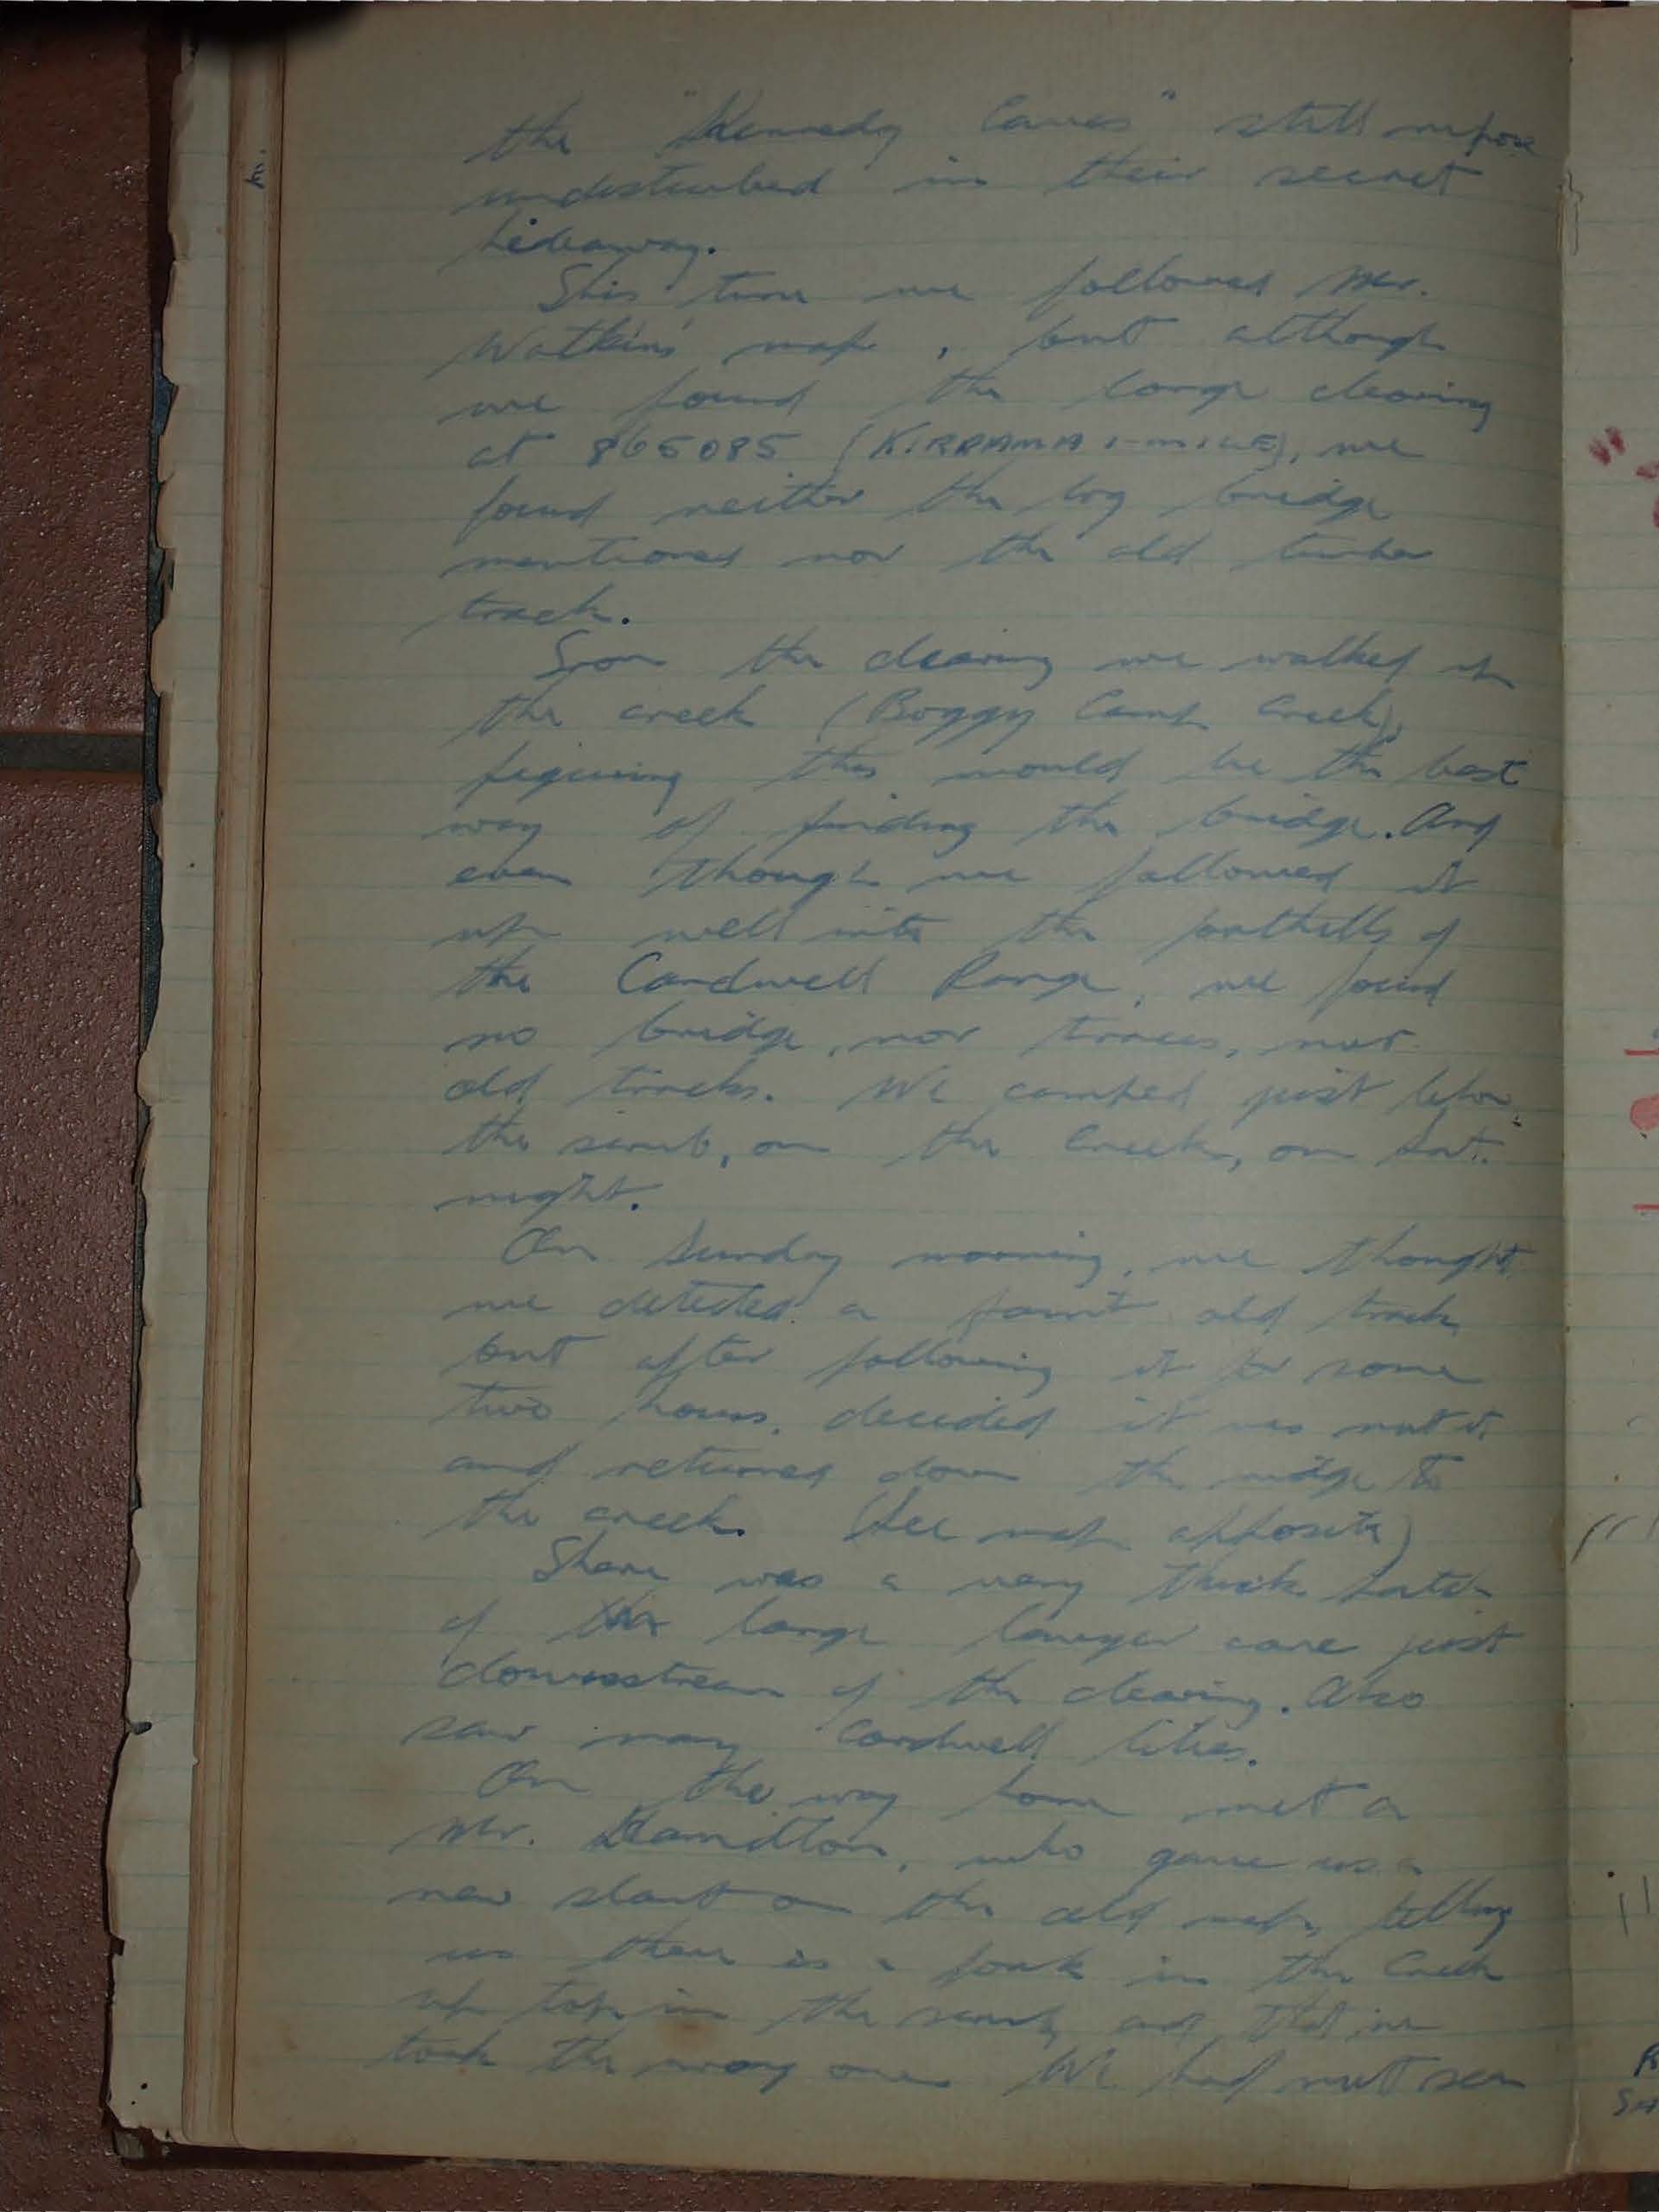 the "Kennedy Caves" still repose
undisturbed in their secret
hideaway.
This time we followed Mr.
Watkins' map, but although
we found the large clearing
at 865085 (KIRRAMA 1-MILE), we
found neither the log bridge
mentioned nor the old timber
track.
From the clearing we walked up
the creek (Boggy Camp Creek),
figuring this would be the best
way of finding the bridge. And
even though we followed it
up well into the foothills of
the Cardwell Range, we found
no bridge, nor traces, nor
old tracks. We camped just below
the scrub, on the Creek, on Sat.
night.
On Sunday morning, we thought
we detected a faint old track
but after following it for some
two hours, decided it was not it,
and returned down the ridge to
the creek. (See map opposite)
There was a very thick patch
of the large lawyer cane just
downstream of the clearing. Also
saw many Cardwell lilies.
On the way home met a
Mr. Hamilton, who gave us a
new slant on the old map, telling
us there is a fork in the Creek
up top in the scrub, and that we
took the wrong one. We had not seen